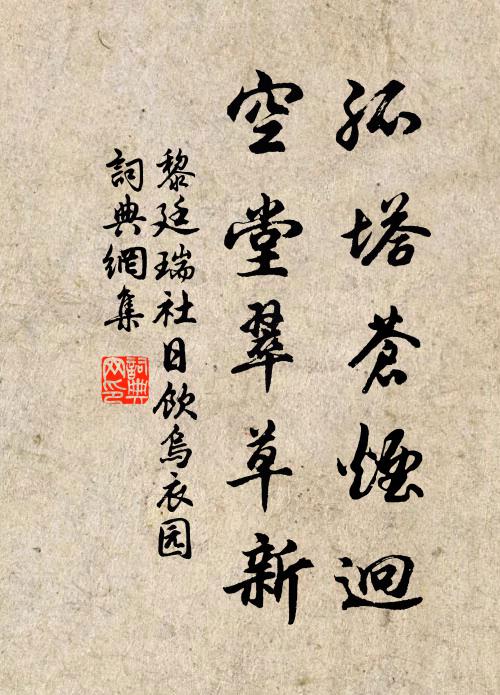 孤塔蒼煙迥
空堂翠草新
黎廷瑞社日飲烏衣园
詞典網集
詞典
网印